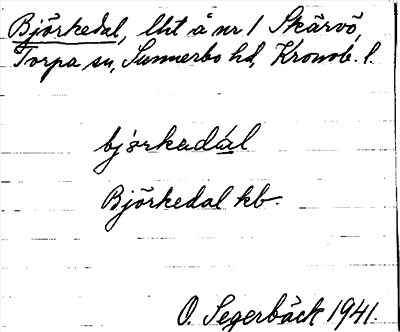 Björkedal, lht å nr 1 Skärvö,
Torpa sn, Sunnerbo hd, Kronob. l.
bjo̊rkadál
Björkedal kb.
O. Segerbäck 1941.